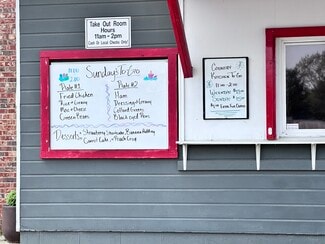 Take Out Room
Hours
11am - 2pm
Cash Or Local Checks Only!
Sundays To Go
Plate #1
Plate #2
Fried Chicken
Ham
Rice & Gravy
Dressing & Gravy
Mac & Cheese
Collard Greens
Green Beans
Black eyed Peas
Desserts: Strawberry Shortcake, Banana Pudding
Carrot Cake, Peach Crisp
Country
Kitchen To Go
11 am - 2 pm